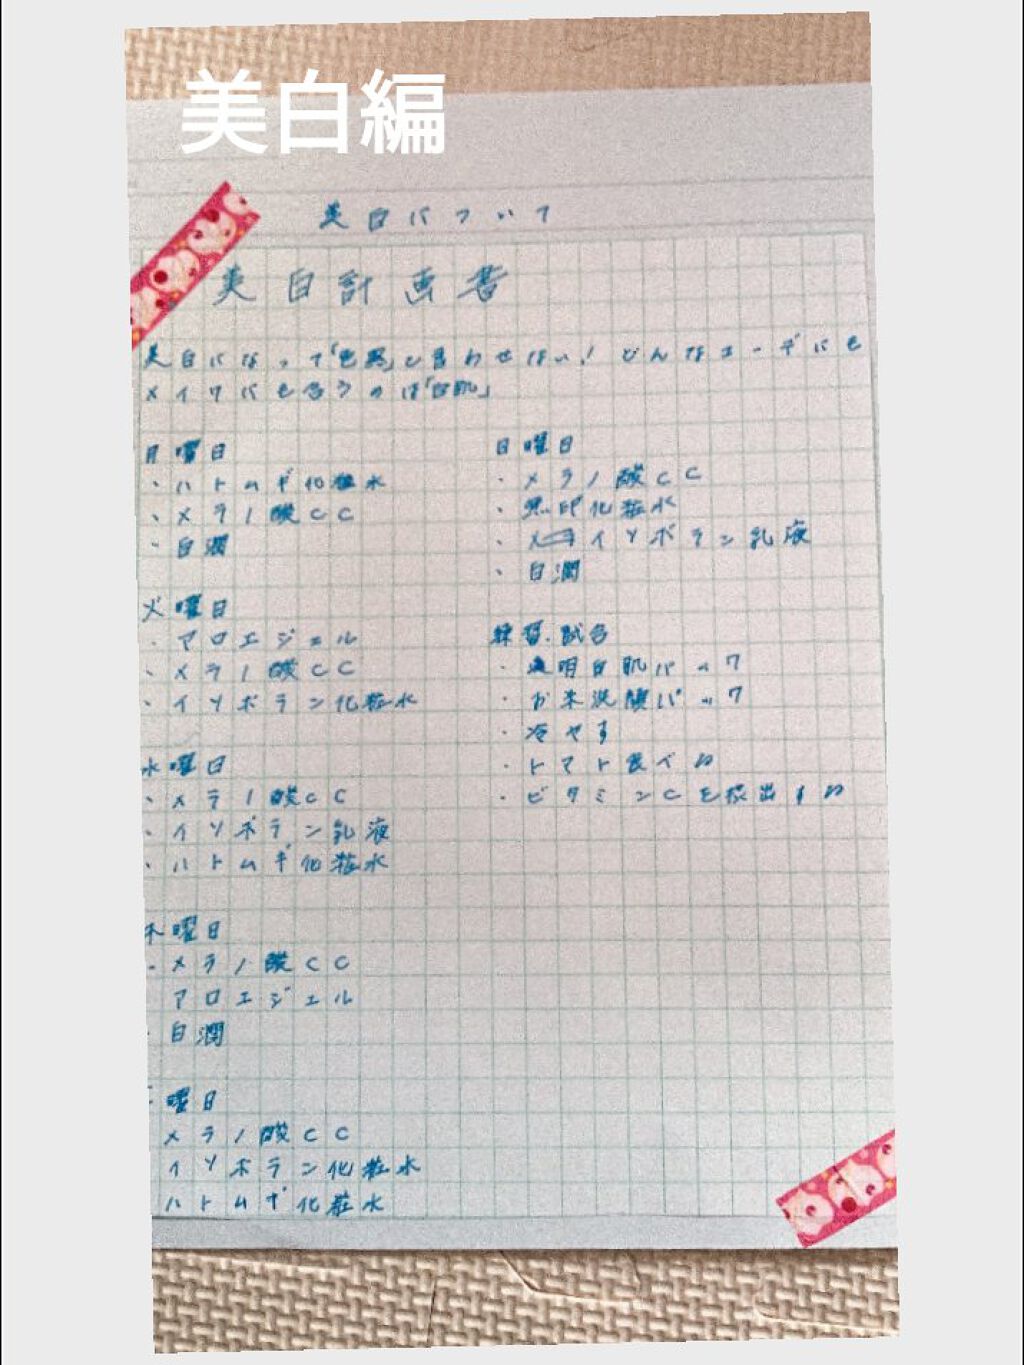 美白編
美白について
美白計画書
美白になって「色黒」と言わせない!どんなコーデにも
メイクにも合うのは「白肌」
月曜日
・ハトムギ化粧水
・メラノ酸CC
・白潤
火曜日
・アロエジェル
・メラノ酸CC
・イソボラン化粧水
水曜日
・メラノ酸CC
・イソボラン乳液
・ハトムギ化粧水
木曜日
・メラノ酸CC
アロエジェル
・白潤
曜日
メラノ酸CC
イソボラン化粧水
ハトムギ化粧水
日曜日
・メラノ酸CC
・無印化粧水
・イソボラン乳液
・白潤
練習.試合
・透明白肌パック
・お米洗顔パック
・冷やす
・トマト食べる
・ビタミンCを摂出する